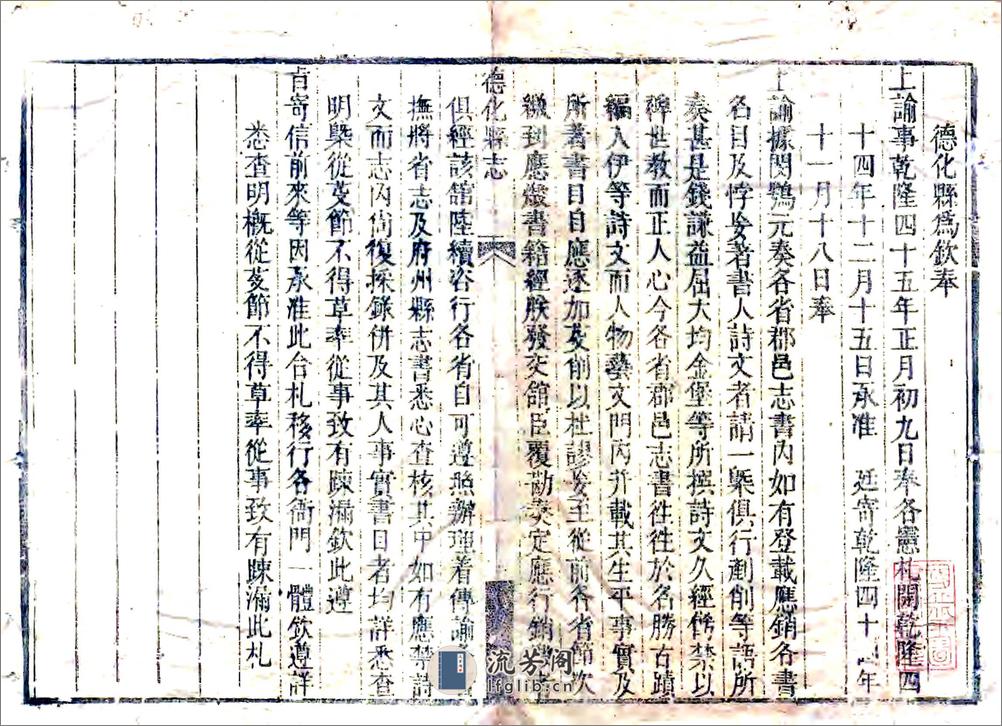 德化縣爲欽奉
上諭事乾隆四十五年正月初九日奉各憲札開乾隆四
十四年十二月十五日承准 廷寄乾隆四十四年
十一月十八日奉
上諭據閔鶚元奏各省郡邑志書內如有登載應銷各書
名目及悖妄著書人詩文者請一槩俱行剷削等語所
奏甚是錢謙益屈大均金堡等所撰詩文久經飭禁以
裨世教而正人心今各省郡邑志書徃徃於名勝古蹟
編入伊等詩文而人物藝文門內并載其生平事實及
所著書目自應逐加芟削以杜謬妄至從前各省節次
繳到應燬書籍經朕發交舘臣覆勘奏定應行銷燬
德化縣志
俱經該舘陸續咨行各省自可遵照辦理着傳諭
撫將省志及府州縣志書悉心查核其中如有應禁詩
文而志內尙復採錄併及其人事實書目者均詳悉查
明槩從芟節不得草率從事致有踈漏欽此遵
旨寄信前來等因承准此合札移行各衙門一體欽遵詳
悉查明槪從芟節不得草率從事致有踈漏此札
流芳閣
lfglib.cn